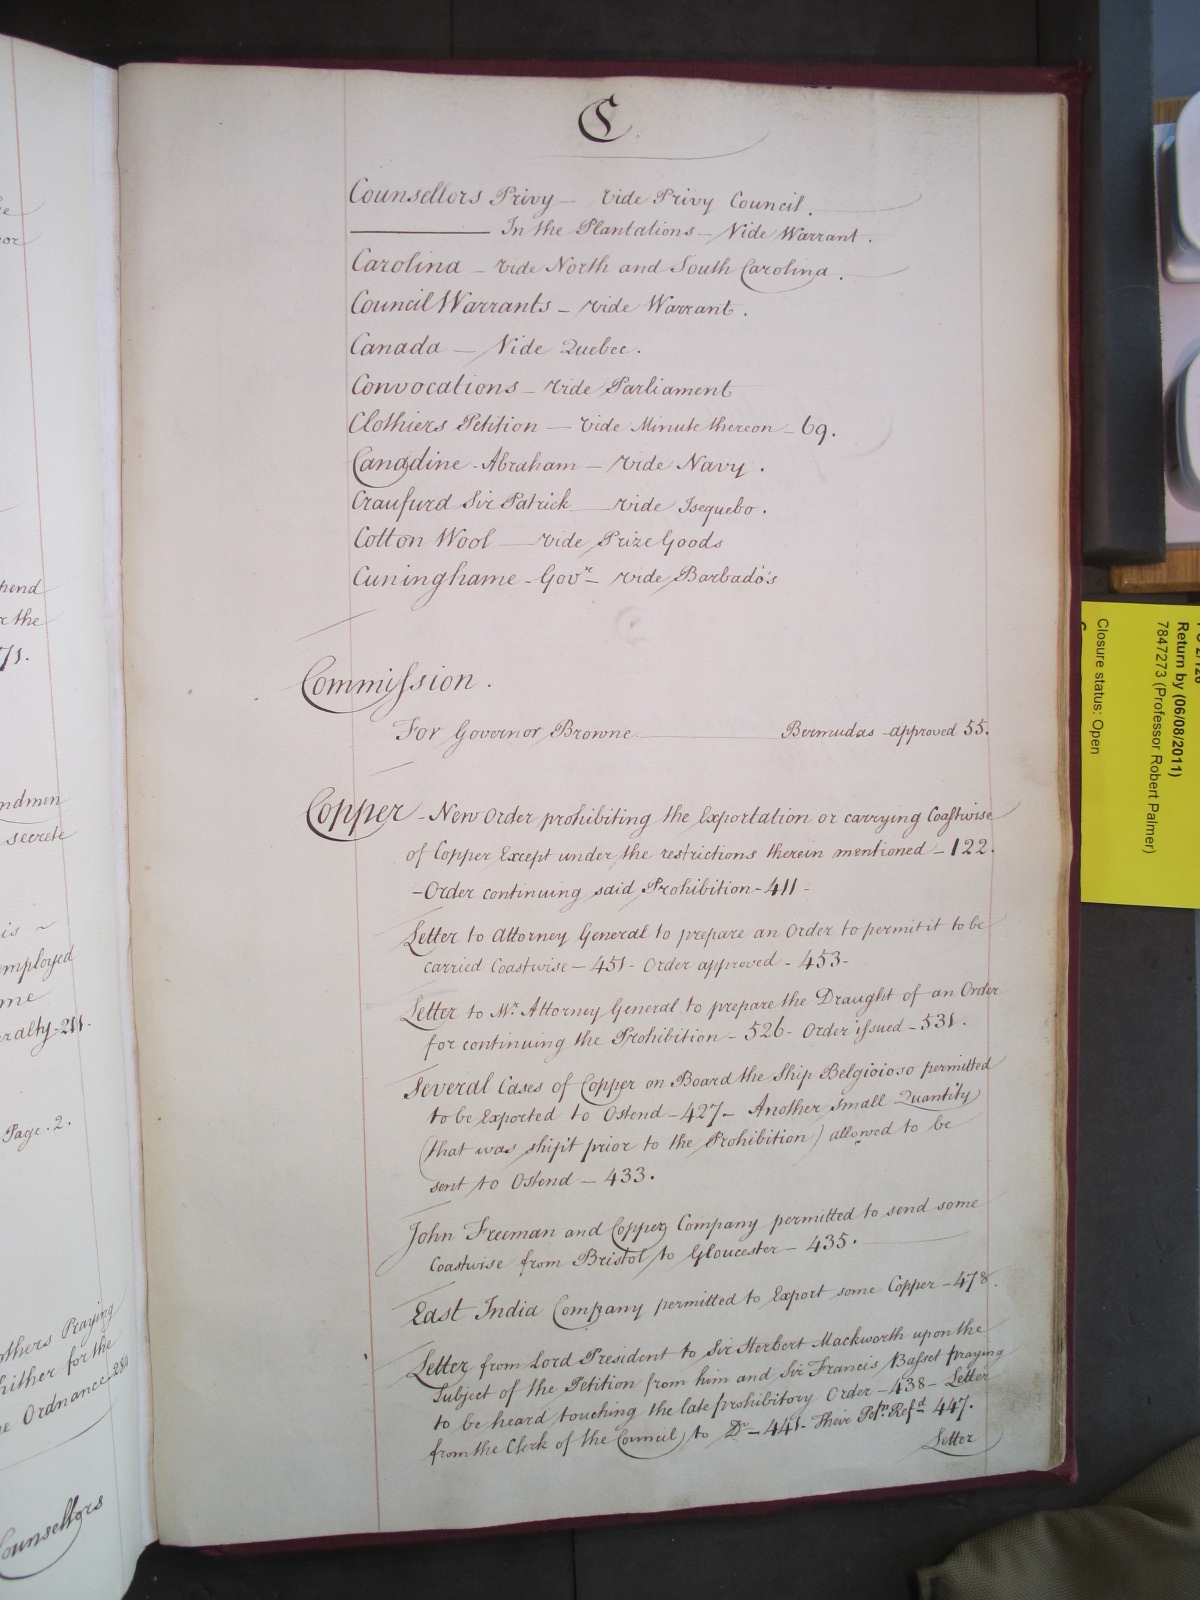 C.
Counsellors Privy — vide Privy Council.
——— In the Plantations — Vide Warrant.
Carolina — vide North and South Carolina.
Council Warrants — vide Warrant.
Canada — Vide Quebec.
Convocations — vide Parliament
Clothiers Petition — vide Minute thereon — 69.
Canadine - Abraham — vide Navy.
Craufurd Sir Patrick — vide Isequebo.
Cotton Wool — vide Prize Goods
Cuninghame - Govr — vide Barbado's
Commission.
For Governor Browne — Bermudas - approved 55.
Copper - New Order prohibiting the Exportation or carrying Coastwise
of Copper Except under the restrictions therein mentioned — 122.
- Order continuing said Prohibition - 411 -
Letter to Attorney General to prepare an Order to permit it to be
carried Coastwise — 451 - Order approved - 453 -
Letter to Mr. Attorney General to prepare the Draught of an Order
for continuing the Prohibition — 526 - Order issued - 531.
Several Cases of Copper on Board the Ship Belgioioso permitted
to be Exported to Ostend — 427 — Another small Quantity
(that was ship't prior to the Prohibition) allowed to be
sent to Ostend — 433.
John Freeman and Copper Company permitted to send some
Coastwise from Bristol to Gloucester — 435.
East India Company permitted to Export some Copper — 478.
Letter from Lord President to Sir Herbert Mackworth upon the
Subject of the Petition from him and Sir Francis Basset praying
to be heard touching the late prohibitory Order — 438 — Letter
from the Clerk of the Council to Do — 441 - Their Petn. Refd. 447.
Letter
pend
r the
171.
ndmen
secrete
is ~
employed
me
eralty - 211.
Page. 2.
others Praying
hither for the
e Ordnance
Counsellors
Return by (06/08/2011)
7847273 (Professor Robert Palmer)
Closure status: Open